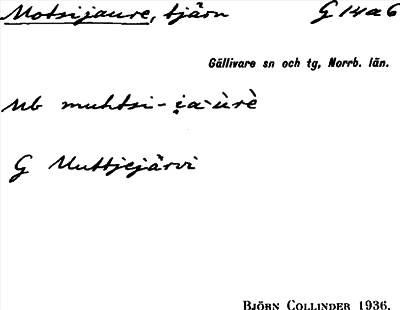 Motsijaure, tjärn G 14a6
Gällivare sn och tg, Norrb. län.
Nb muhtsi-i̯a·ùrè
G Muttjejärvi
BJÖRN COLLINDER 1936.